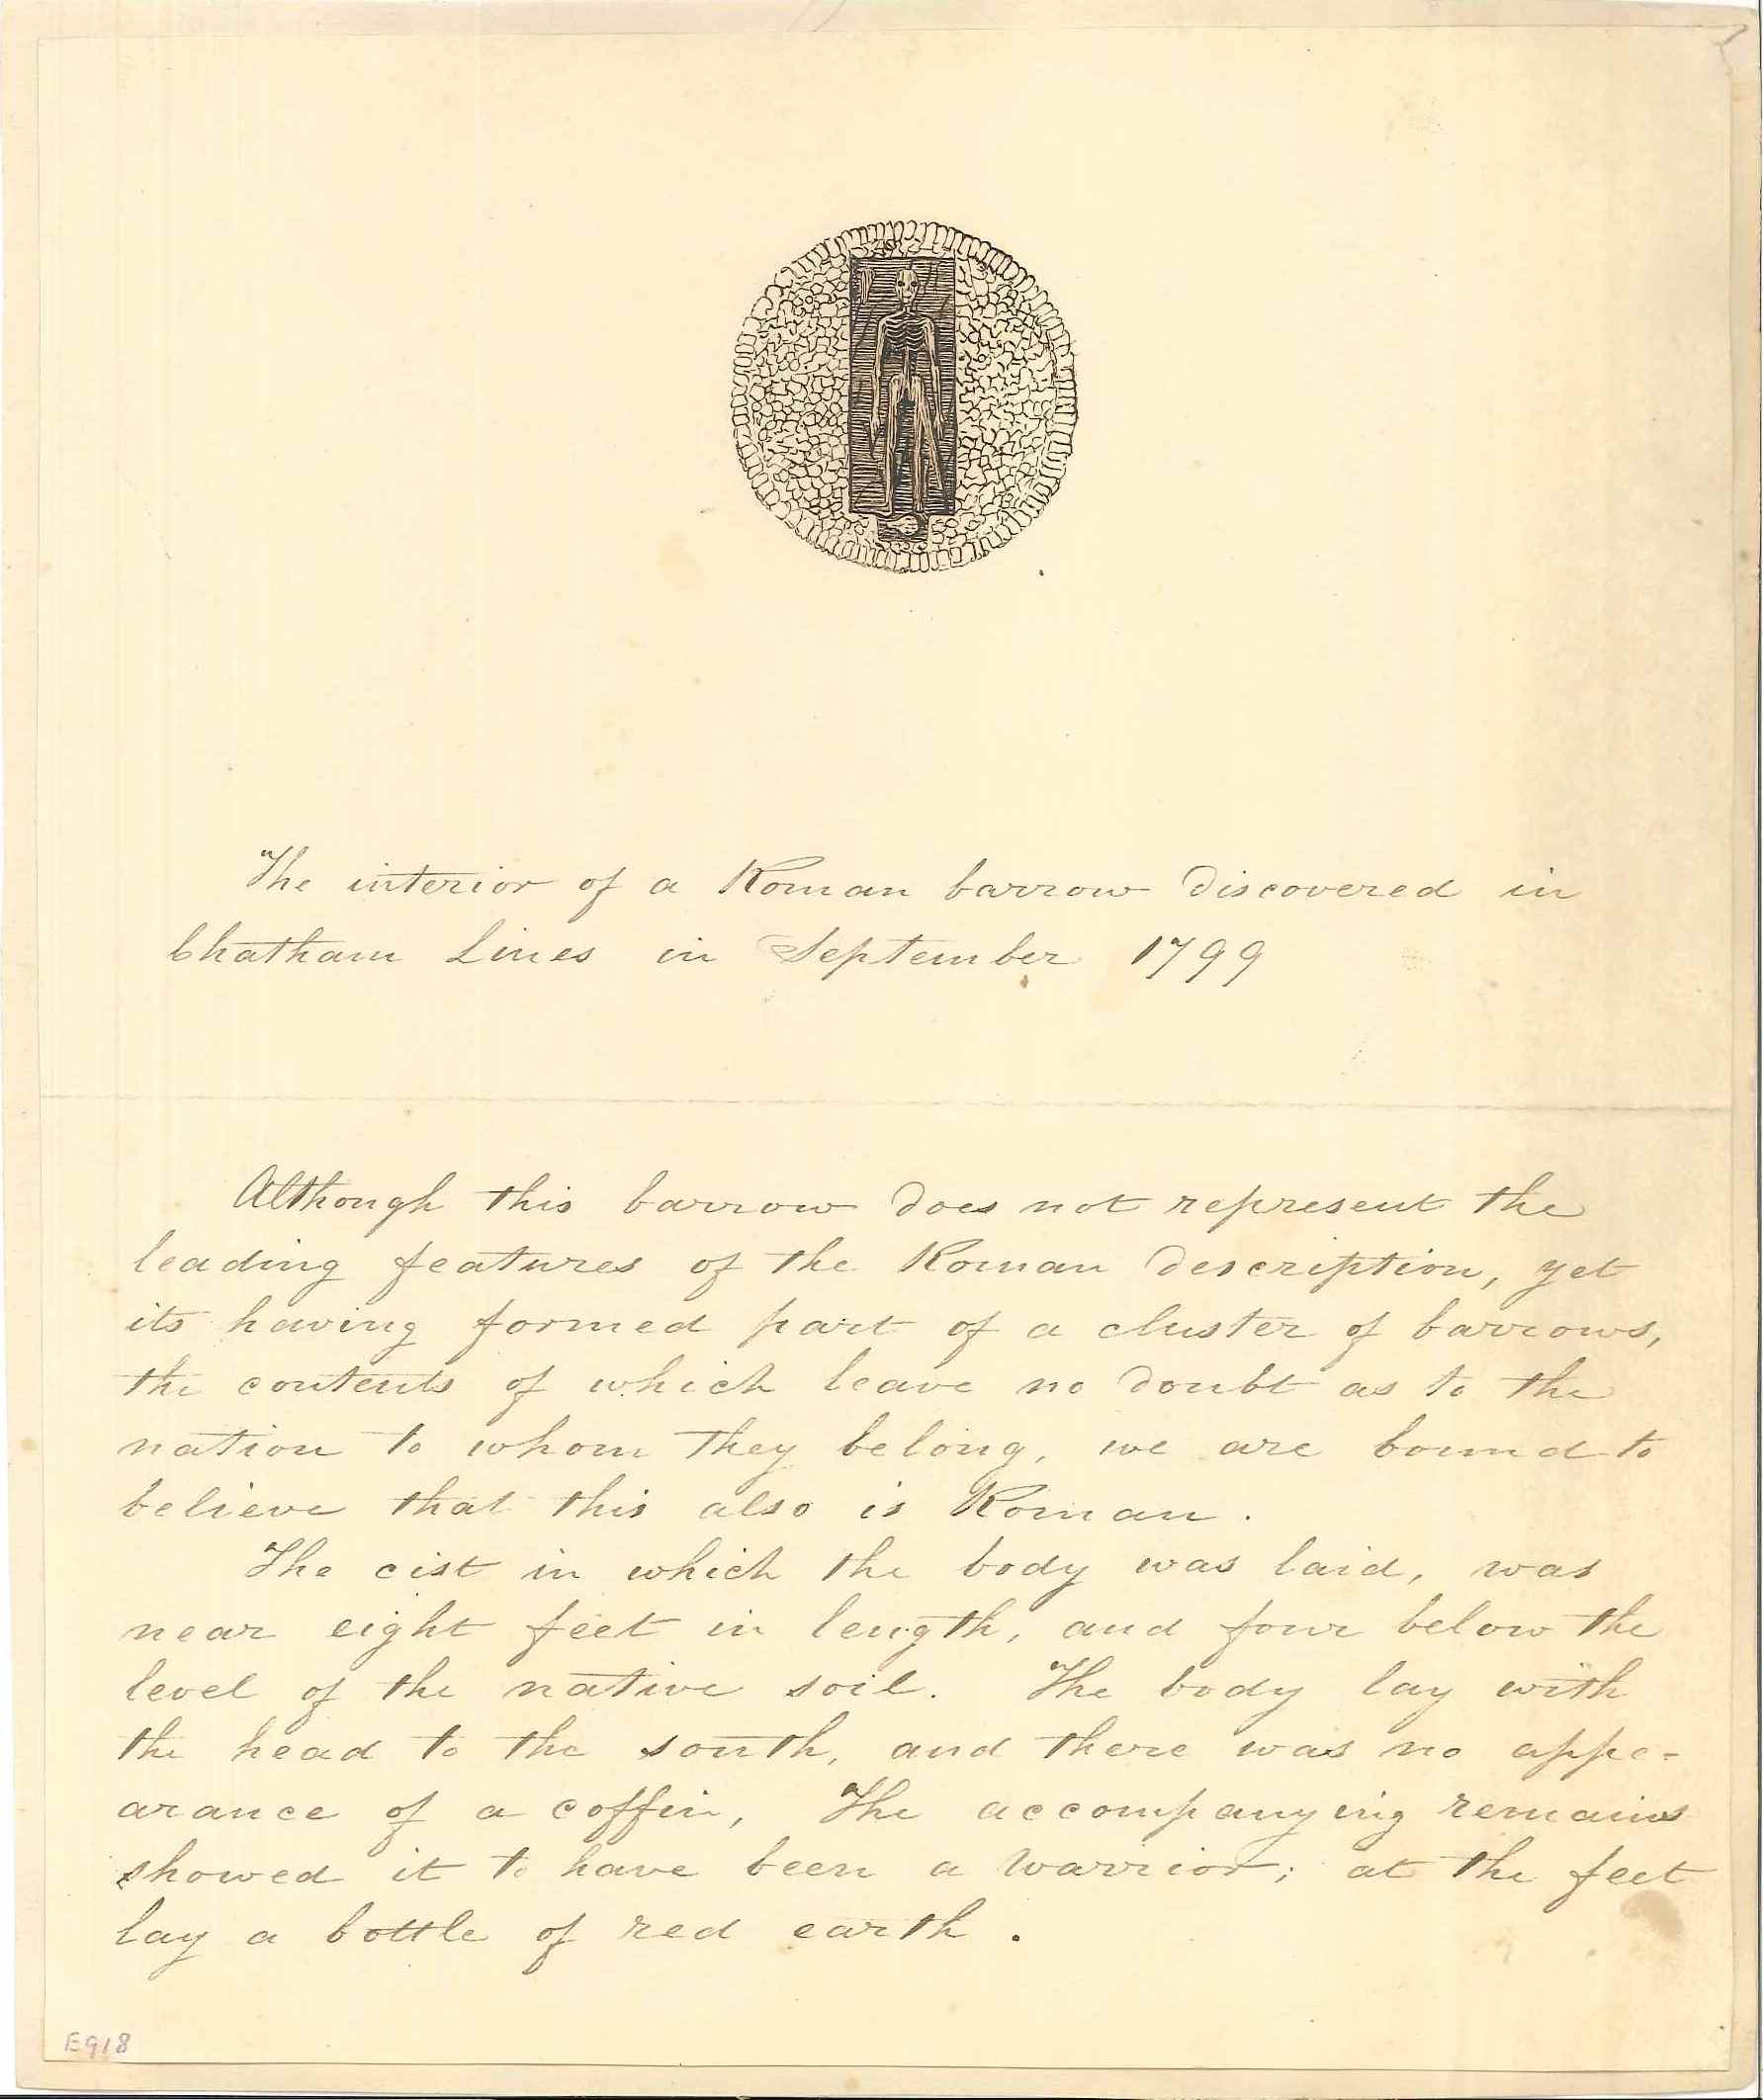 The interior of a Roman barrow discovered in
Chatham Lines in September 1799
Although this barrow does not represent the
leading features of the Roman description, yet
its having formed part of a cluster of barrows,
the contents of which leave no doubt as to the
nation to whom they belong, we are bound to
believe that this also is Roman.
The cist in which the body was laid, was
near eight feet in length, and four below the
level of the native soil. The body lay with
the head to the south, and there was no appe-
arance of a coffin, The accompanying remains
showed it to have been a warrior; at the feet
lay a bottle of red earth.
E918